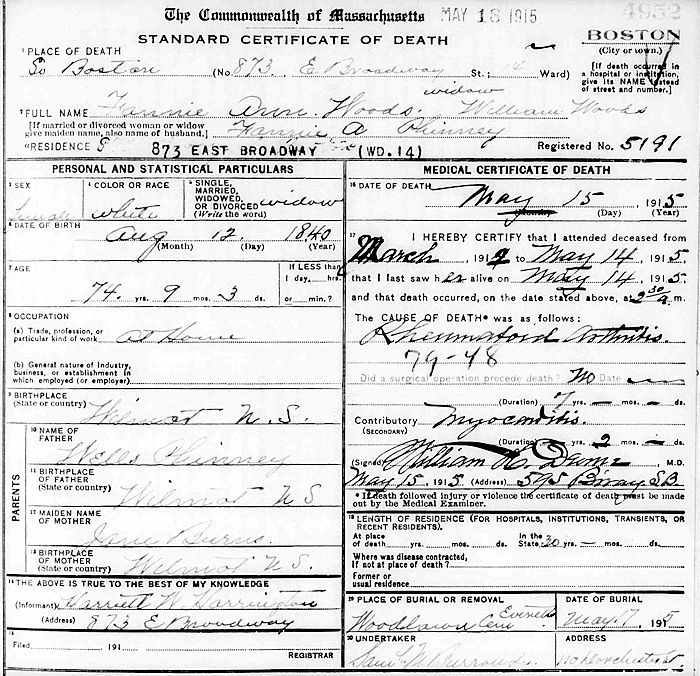 The Commonwealth of Massachusetts MAY 18 1915 4952
STANDARD CERTIFICATE OF DEATH BOSTON
(City or town.)
1 PLACE OF DEATH
So Boston (No. 873 E Broadway St.; 14 Ward)
[If death occurred in a hospital or institution, give its NAME instead of street and number.]
widow
2 FULL NAME Fannie Ann Woods William Woods
[If married or divorced woman or widow give maiden name, also name of husband.] Fannie A Phinney
RESIDENCE 873 EAST BROADWAY (WD. 14) Registered No. 5191
PERSONAL AND STATISTICAL PARTICULARS
3 SEX female
4 COLOR OR RACE white
5 SINGLE, MARRIED, WIDOWED, OR DIVORCED (Write the word) widow
6 DATE OF BIRTH Aug 12 1840
(Month) (Day) (Year)
7 AGE If LESS than 1 day, hrs.
74 yrs. 9 mos. 3 ds. or min.?
8 OCCUPATION
(a) Trade, profession, or particular kind of work At Home
(b) General nature of industry, business, or establishment in which employed (or employer)
9 BIRTHPLACE
(State or country) Wilmot N.S.
PARENTS
10 NAME OF FATHER Wells Phinney
11 BIRTHPLACE OF FATHER (State or country) Wilmot NS
12 MAIDEN NAME OF MOTHER Jane Burns
13 BIRTHPLACE OF MOTHER (State or country) Wilmot N.S.
14 THE ABOVE IS TRUE TO THE BEST OF MY KNOWLEDGE
(Informant) Harriett W Harrington
(Address) 873 E Broadway
15
Filed 191
REGISTRAR
MEDICAL CERTIFICATE OF DEATH
16 DATE OF DEATH May 15 1915
(Month) (Day) (Year)
17 I HEREBY CERTIFY that I attended deceased from
March 1912 to May 14, 1915
that I last saw her alive on May 14, 1915
and that death occurred, on the date stated above, at 2 30 a.m.
The CAUSE OF DEATH* was as follows:
Rheumatoid Arthritis.
79-48
Did a surgical operation precede death? No Date
(Duration) yrs. — mos. — ds.
Contributory Myocarditis.
(SECONDARY)
(Duration) yrs. 2 mos. — ds.
(Signed) William H. M.D.
May 15, 1915 (Address) 595 Bway S.B.
* If death followed injury or violence the certificate of death must be made out by the Medical Examiner.
18 LENGTH OF RESIDENCE (FOR HOSPITALS, INSTITUTIONS, TRANSIENTS, OR RECENT RESIDENTS).
At place of death yrs. mos. ds. In the State 30 yrs. — mos. ds.
Where was disease contracted, If not at place of death?
Former or usual residence
19 PLACE OF BURIAL OR REMOVAL DATE OF BURIAL
Woodlawn Cem Everett May 17 1915
20 UNDERTAKER ADDRESS
Saml M Burroughs Dorchester St